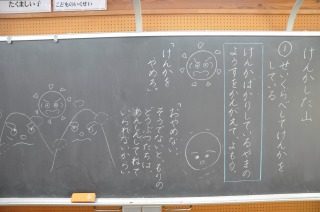 たくましい子
こどものいくせい
けんかした山
① せいくらべしてけんかを
している
けんかばかりしているやまの
ようすをかんがえて、よもう。
「けんかを
やめろ。」
「おやめなさい。
そうでないともりの
どうぶつたちは
あんしんしてねて
いられないから。」